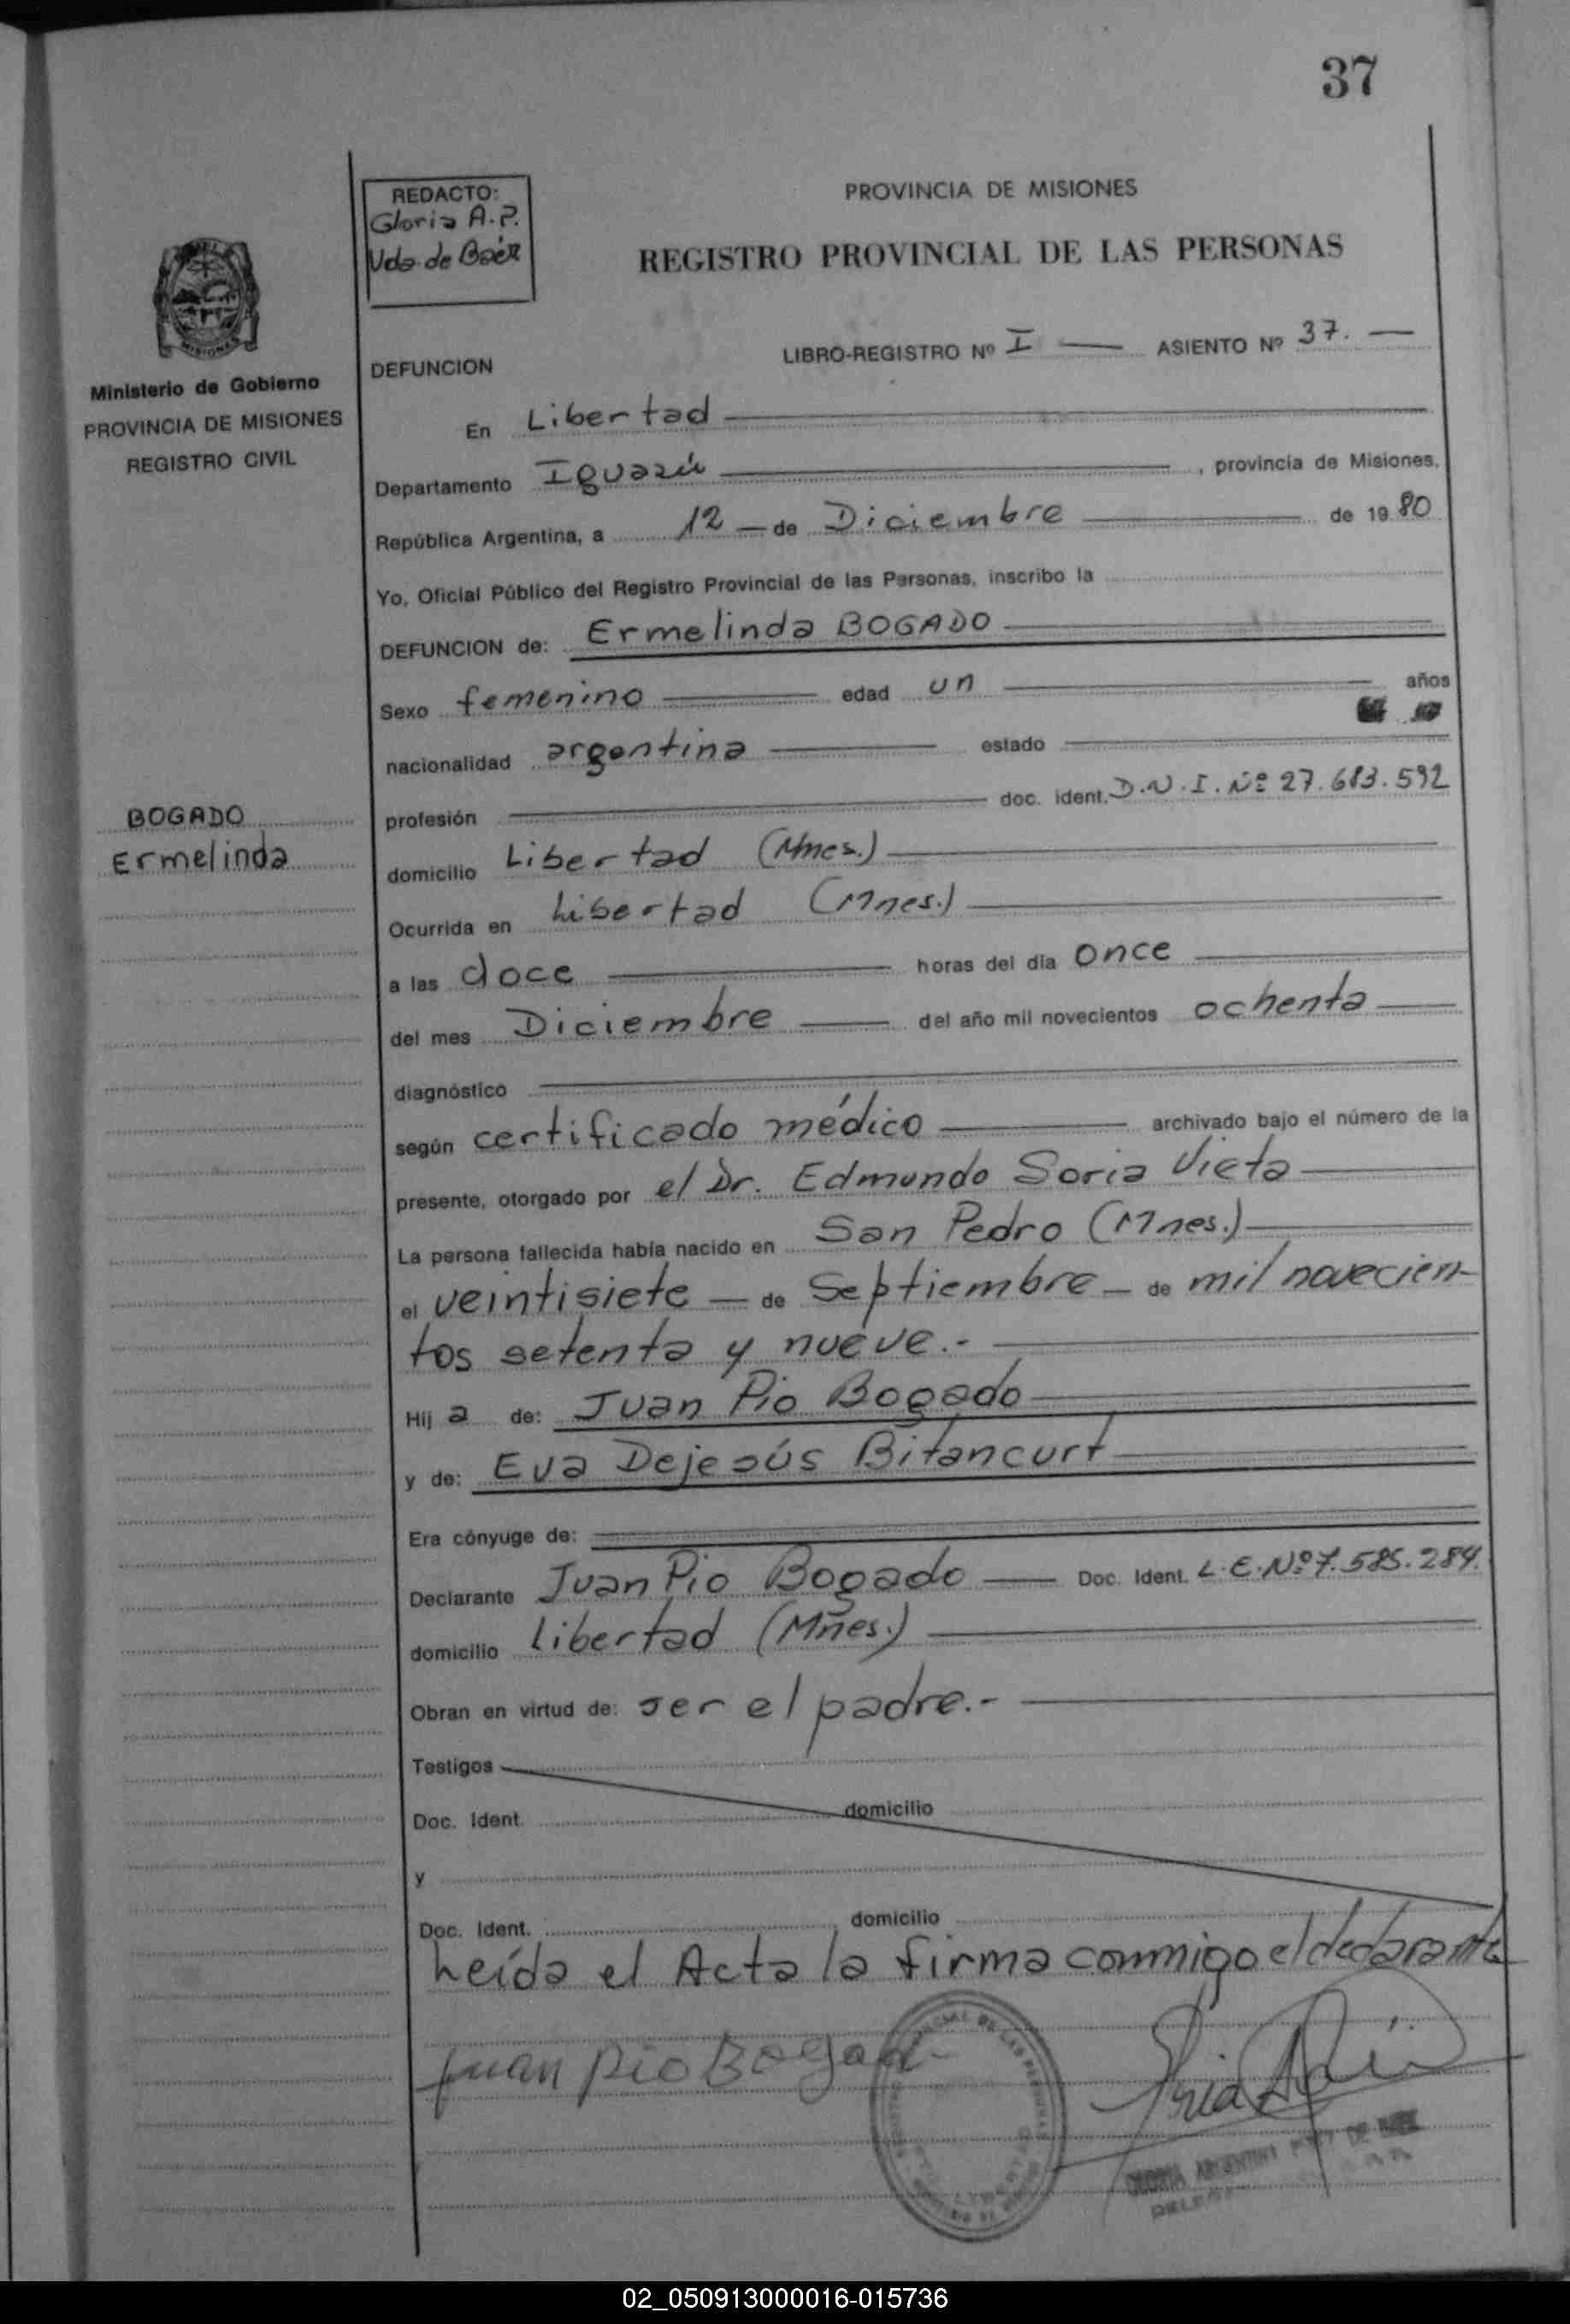 37
REDACTO:
Gloria A. P.
Vda. de Baéz
PROVINCIA DE MISIONES
REGISTRO PROVINCIAL DE LAS PERSONAS
MISIONES
Ministerio de Gobierno
PROVINCIA DE MISIONES
REGISTRO CIVIL
DEFUNCION
LIBRO-REGISTRO Nº I — ASIENTO Nº 37. —
En Libertad
Departamento Iguazú , provincia de Misiones.
República Argentina, a 12 — de Diciembre — de 19 80
Yo, Oficial Público del Registro Provincial de las Personas, inscribo la
DEFUNCION de: Ermelinda BOGADO
Sexo femenino edad un años
nacionalidad argentina estado
profesión doc. ident. D.N.I. Nº 27.683.592
BOGADO
Ermelinda
domicilio Libertad (Mnes.)
Ocurrida en Libertad (Mnes.)
a las doce horas del día once
del mes Diciembre del año mil novecientos ochenta
diagnóstico
según certificado médico archivado bajo el número de la
presente, otorgado por el Dr. Edmundo Soria Vieta
La persona fallecida había nacido en San Pedro (Mnes.)
el veintisiete — de Septiembre — de mil novecien-
tos setenta y nueve.-
Hij a de: Juan Pio Bogado
y de: Eva Dejesús Bitancurt
Era cónyuge de:
Declarante Juan Pio Bogado — Doc. Ident. L.E. Nº 7.585.284.
domicilio Libertad (Mñes.)
Obran en virtud de: ser el padre.-
Testigos
Doc. Ident. domicilio
y
Doc. Ident. domicilio
Leída el Acta la firma conmigo el declarante
Juan pio Bogad
02_050913000016-015736